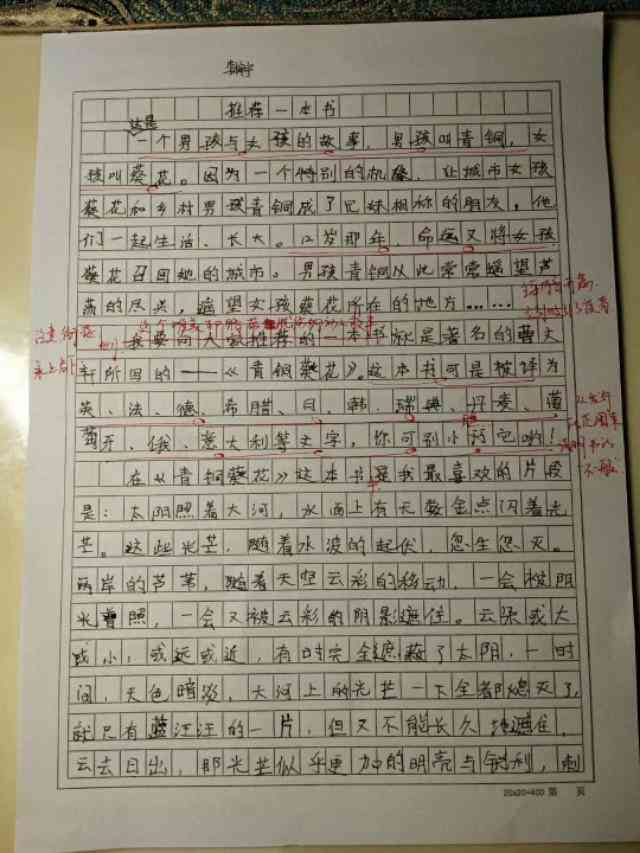 推荐一本书
这是
一个男孩与女孩的故事,男孩叫青铜,女
孩叫葵花。因为一个特别的机缘,让城市女孩
葵花和乡村男孩青铜成了兄妹相称的朋友,他
们一起生活、长大。12岁那年,命运又将女孩
葵花召回她的城市。男孩青铜从此常常遥望芦
荡的尽头,遥望女孩葵花所在的地方……
我要向大家推荐的一本书就是著名的曹文
轩所写的——《青铜葵花》。这本书可是被译为
英、法、德、希腊、日、韩、瑞典、丹麦、葡
萄牙、俄、意大利等文字,你可别小瞧它哟!
在《青铜葵花》这本书是我最喜欢的片段
是:太阳照着大河,水面上有无数金点闪着光
芒。这些光芒,随着水波的起伏,忽生忽灭。
两岸的芦苇,随着天空云彩的移动,一会被阳
光普照,一会又被云彩的阴影遮住。云朵或大
或小,或远或近,有时完全遮蔽了太阳,一时
间,天色暗淡,大河上的光芒一下全都熄灭了,
就只有蓝汪汪的一片,但又不能长久地遮住,
云去日出,那光芒似乎更加的明亮与锐利,刺
20x20=400 第 页